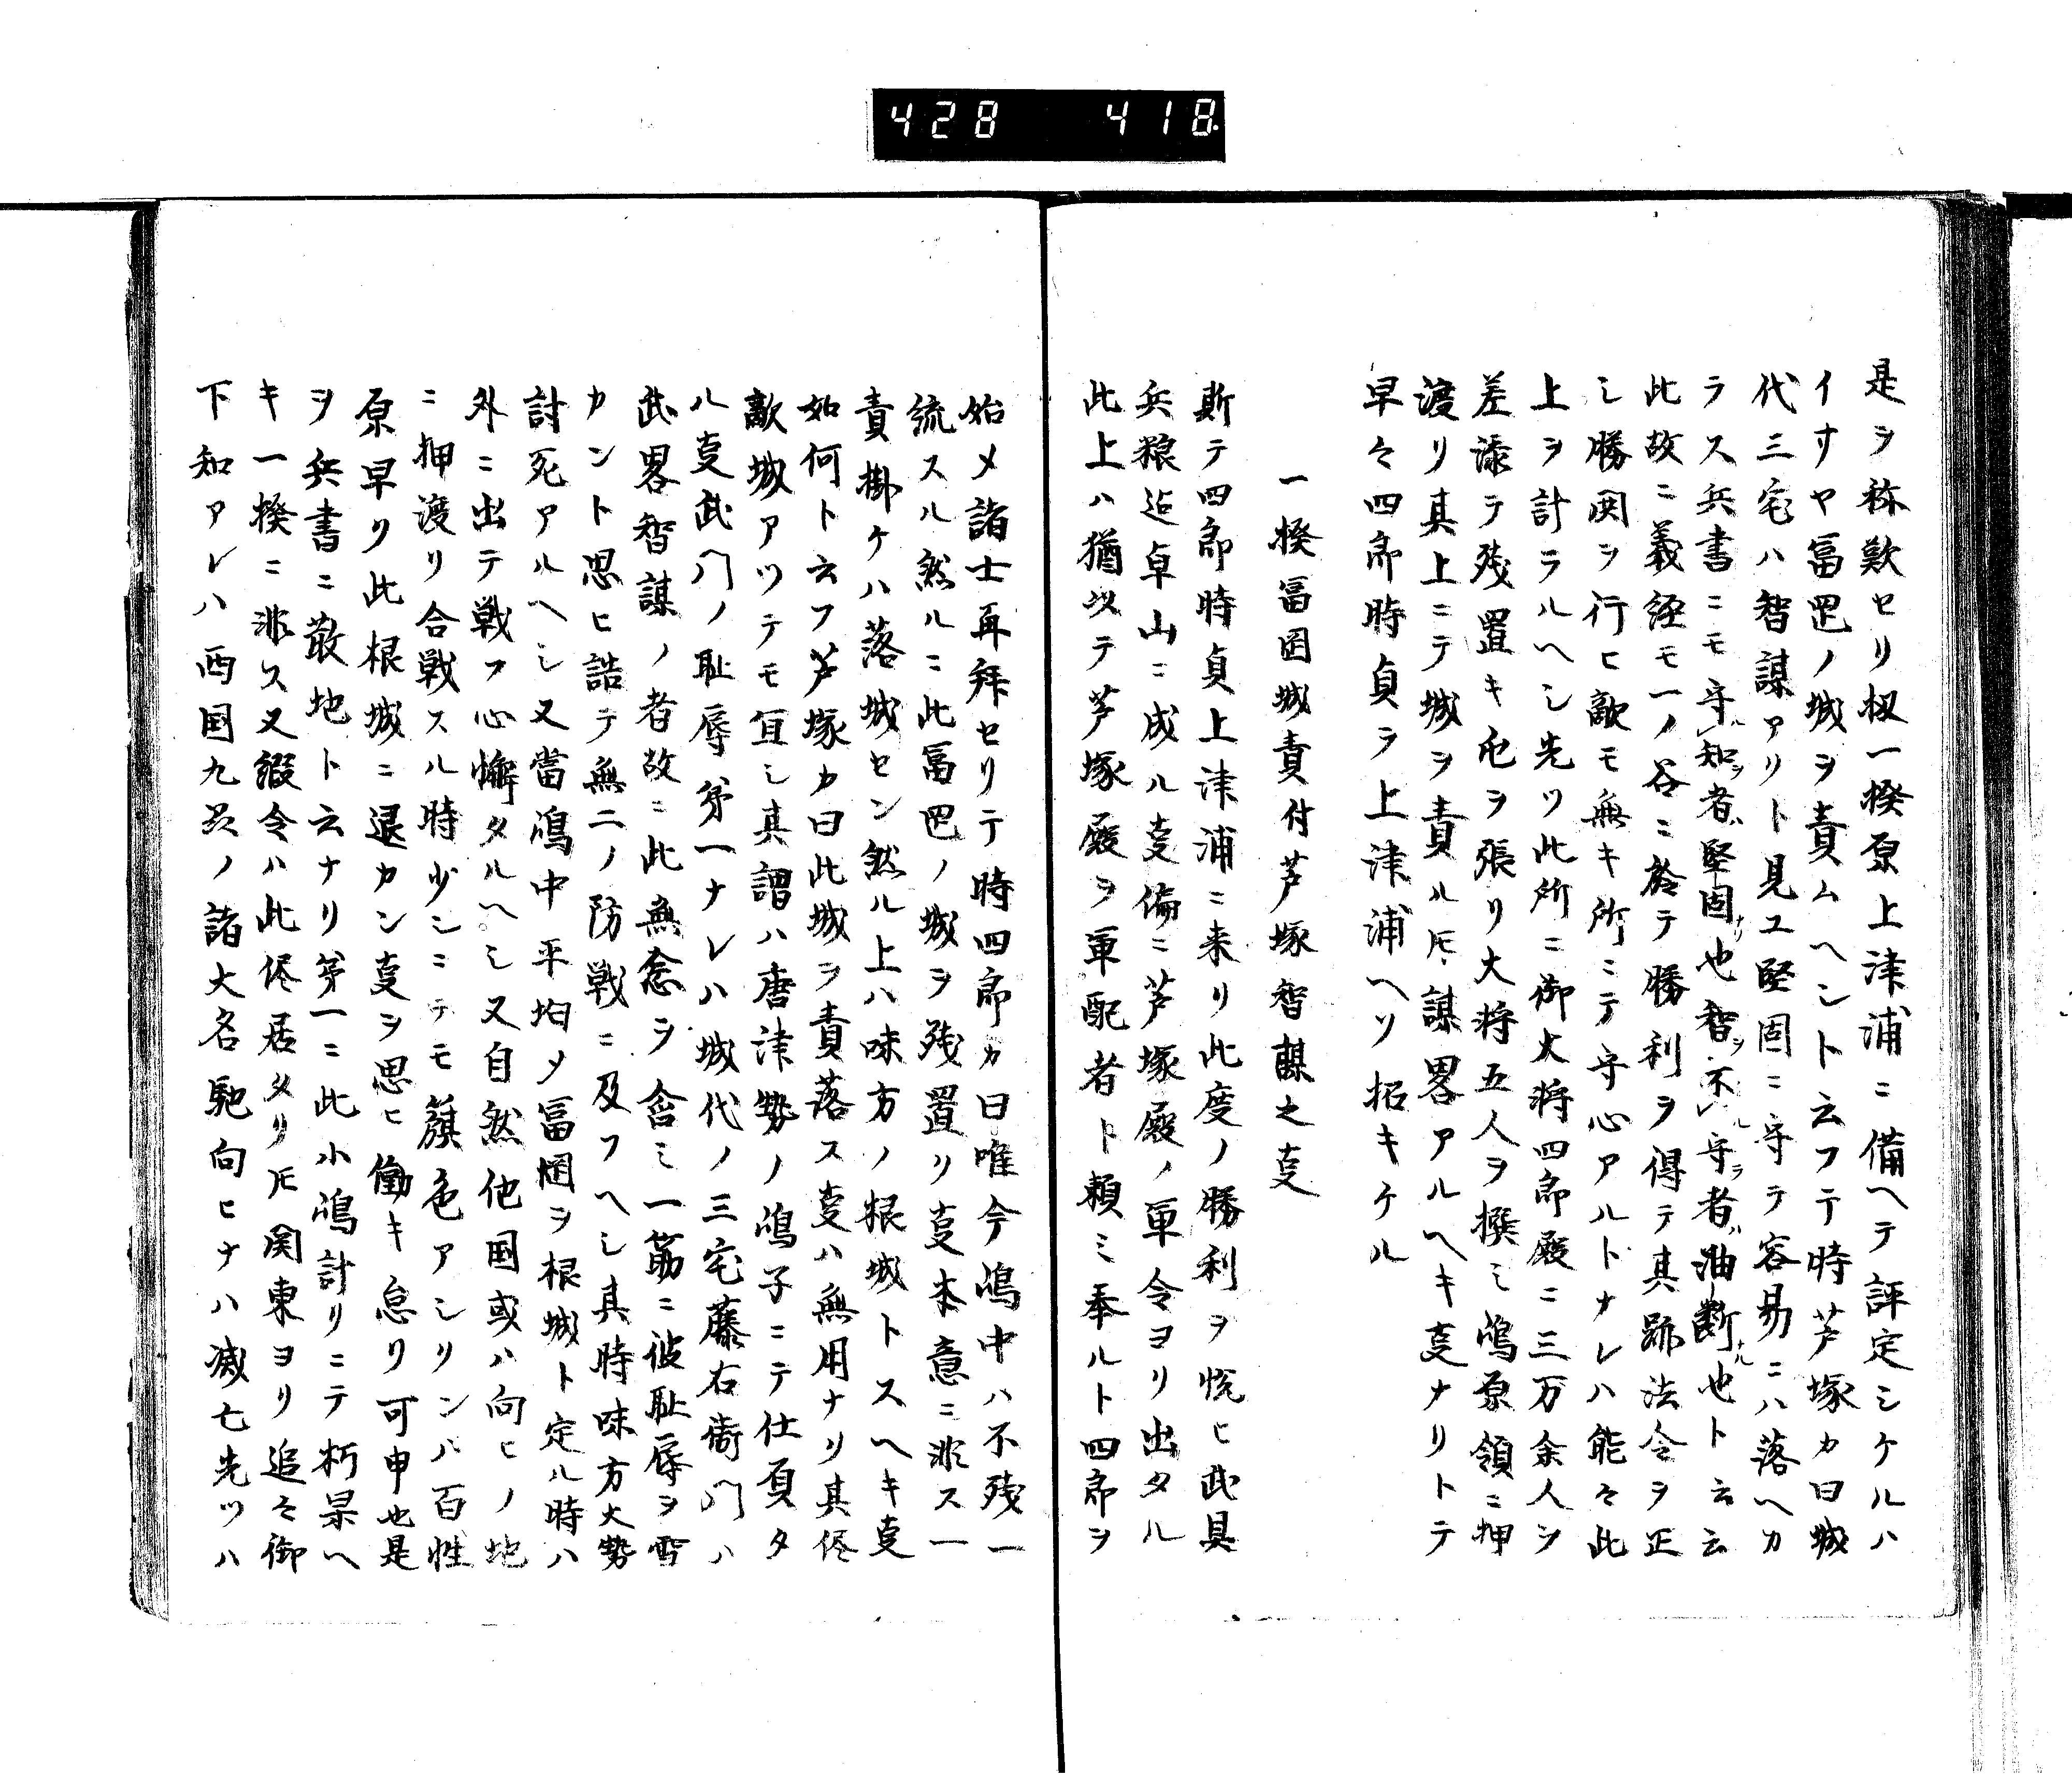 428 418
是ヲ称歎セリ扨一揆原上津浦ニ備ヘテ評定シケルハ
イサヤ冨岡ノ城ヲ責ムヘシト云フテ時芦塚カ曰城
代三宅ハ智謀アリト見ユ堅固ニ守テ容易ニハ落ヘカ
ラス兵書ニモ守ル知ヲ者ハ堅固ナリ也智ヲ不ルレ守ラ者ハ油断ナル也ト云云
此故ニ義経モ一ノ谷ニ於テ勝利ヲ得テ其跡法令ヲ正
シ勝閧ヲ行ヒ敵モ無キ所ニテ守心アルトナレハ能々此
上ヲ計ラルヘシ先ツ此所ニ御大将四郎殿ニ三万余人ヲ
差添テ残置キ陣ヲ張リ大将五人ヲ撰ミ嶋原領ニ押
渡リ其上ニテ城ヲ責ル𪜈謀畧アルヘキ叓ナリトテ
早々四郎時貞ヲ上津浦ヘソ招キケル
一揆冨岡城責付芦塚智謀之叓
斯テ四郎時貞上津浦ニ来リ此度ノ勝利ヲ悦ヒ武具
兵粮迠卓山ニ成ル叓偏ニ芦塚殿ノ軍令ヨリ出タル
此上ハ猶以テ芦塚殿ヲ軍配者ト頼ミ奉ルト四郎ヲ
始メ諸士再拜セリテ時四郎カ曰唯今嶋中ハ不残一
統スル然ルニ此冨岡ノ城ヲ残置リ叓本意ニ非ス一
責掛ケハ落城セン然ル上ハ味方ノ根城トスヘキ叓
如何ト云フ芦塚カ曰此城ヲ責落ス叓ハ無用ナリ其侭
敵城アツテモ宜シ其謂ハ唐津勢ノ嶋子ニテ仕負タ
ル叓武門ノ恥辱第一ナレハ城代ノ三宅藤右衛門ハ
武畧智謀ノ者故ニ此無念ヲ含ミ一筋ニ彼恥辱ヲ雪
カント思ヒ詰テ無二ノ防戦ニ及フヘシ其時味方大勢
討死アルヘシ又當嶋中平均メ冨岡ヲ根城ト定ル時ハ
外ニ出テ戦フ心懈タルヘシ又自然他国或ハ向ヒノ地
ニ押渡リ合戦スル時少シニテモ籏色アシリンハ百性
原早ク此根城ニ退カン叓ヲ思ヒ働キ怠リ可申也是
ヲ兵書ニ散地ト云ナリ第一ニ此小嶋計リニテ朽果ヘ
キ一揆ニ非ス又縦令ハ此侭居タリ𪜈関東ヨリ追々御
下知アレハ西国九州ノ諸大名馳向ヒナハ滅亡先ツハ